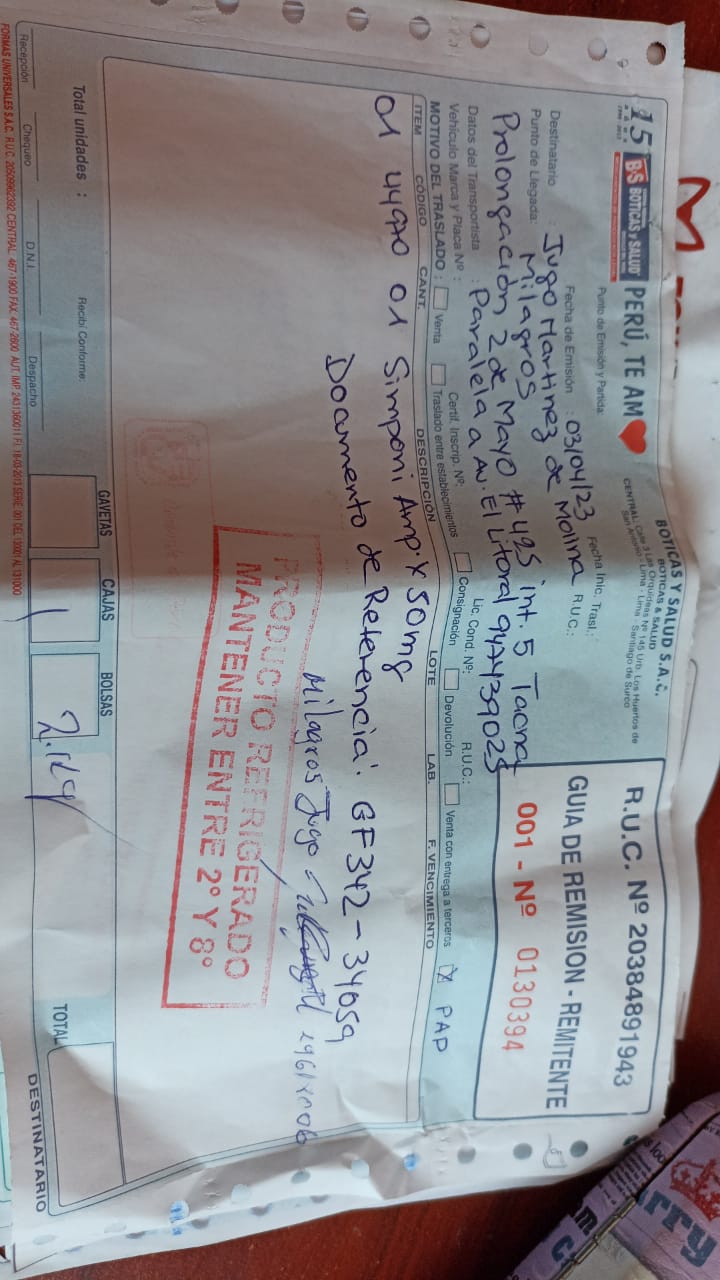 15
AÑOS
B&S BOTICAS Y SALUD PERÚ, TE AM
BOTICAS Y SALUD S.A.C.
BOTICAS & SALUD
CENTRAL: Calle 3 Las Orquídeas Nº 145 Urb. Los Huertos de
San Antonio - Lima - Lima - Santiago de Surco
R.U.C. Nº 20384891943
GUIA DE REMISION - REMITENTE
001 - Nº 0130394
Punto de Emisión y Partida:
Fecha de Emisión : 03/04/23 Fecha Inic. Trasl.:
Destinatario : Jugo Martinez de Molina R.U.C.:
Milagros
Punto de Llegada:
Prolongación 2 de Mayo # 495 int. 5 Tacna
Paralela a Av. El Litoral 947439025
Datos del Transportista : R.U.C.:
Vehículo Marca y Placa Nº : Certif. Inscrip. Nº: Lic. Cond. Nº:
MOTIVO DEL TRASLADO : Venta Traslado entre establecimientos Consignación Devolución Venta con entrega a terceros X PAP
ITEM CÓDIGO CANT. DESCRIPCIÓN LOTE LAB. F. VENCIMIENTO
01 44970 01 Simponi Amp. x 50mg
Documento de Referencia: GF342-34059
Milagros Jugo
PRODUCTO REFRIGERADO
MANTENER ENTRE 2° Y 8°
Total unidades : Recibí Conforme:
GAVETAS CAJAS BOLSAS TOTAL
1
Recepción Chequeo D.N.I. Despacho
DESTINATARIO
FORMAS UNIVERSALES S.A.C. R.U.C. 20509962392 CENTRAL: 467-1900 FAX: 467-2600 AUT. IMP. 2431360011 F.I. 18-03-2013 SERIE: 001 DEL 130001 AL 131000